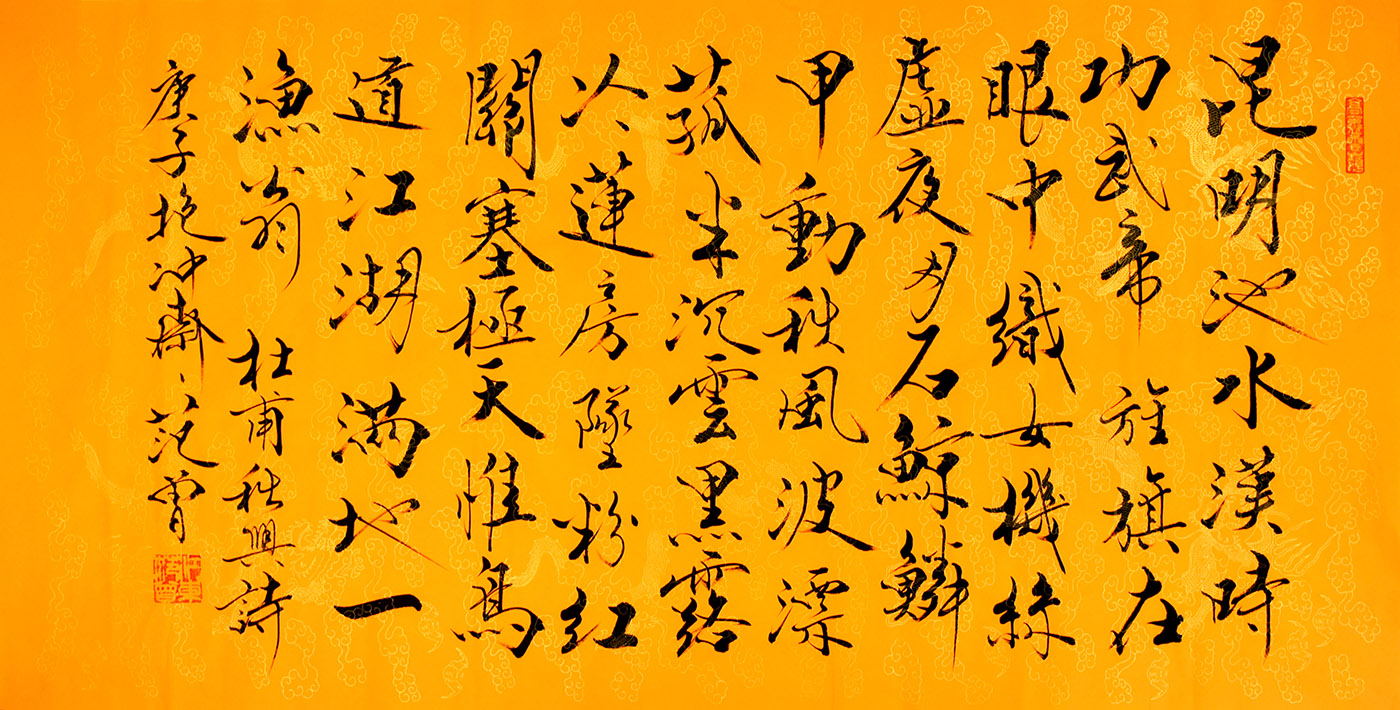 昆明池水漢時
功武帝旌旗在
眼中織女機絲
虛夜月石鯨鱗
甲動秋風波漂
菰米沉雲黑露
冷蓮房墜粉紅
關塞極天惟鳥
道江湖滿地一
漁翁 杜甫秋興詩
庚子抱冲齋范曾
江東范曾